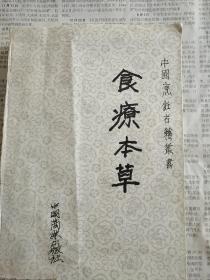 中國烹飪古籍叢書
食療本草
中國商業出版社